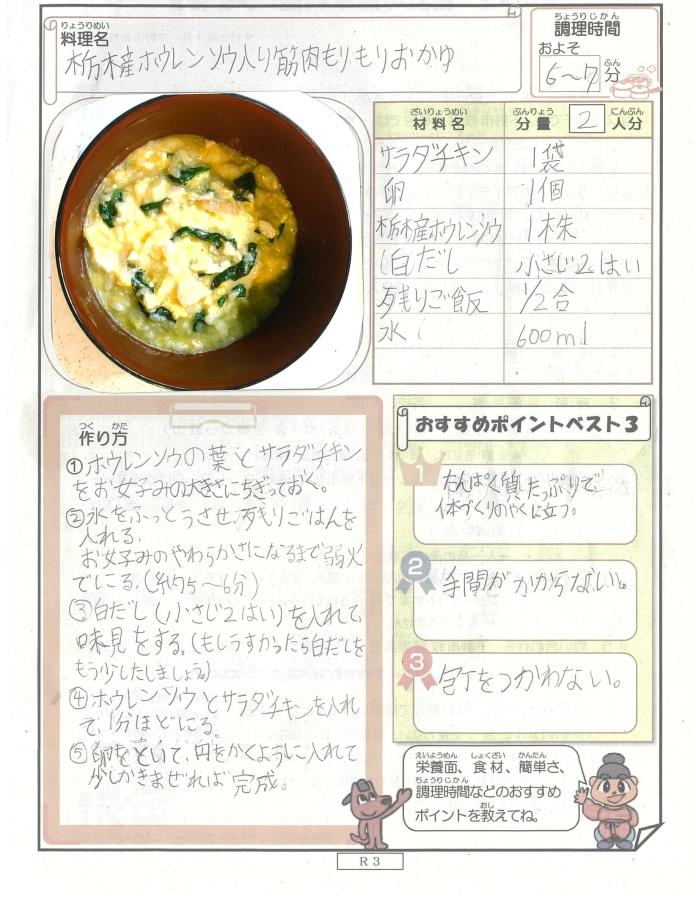 りょうりめい
料理名
栃木産ホウレンソウ入り筋肉もりもりおかゆ
ちょうりじかん
調理時間
およそ
6〜7分
ふん
ざいりょうめい
材料名
ぶんりょう
分量 2 人分
にんぶん
サラダチキン 1袋
卵 1個
栃木産ホウレンソウ 1株
白だし 小さじ2はい
残りご飯 1/2合
水 600ml
つく かた
作り方
①ホウレンソウの葉とサラダチキン
をお女子みの大きさにちぎっておく。
②水をふっとうさせ、残りごはんを
入れる。
お女子みのやわらかさになるまで弱火
でにる。(約5〜6分)
③白だし(小さじ2はい)を入れて、
味見をする。(もしうすかったら白だしを
もう少したしましょう。)
④ホウレンソウとサラダチキンを入れ
て、1分ほどにる。
⑤卵をといて、円をかくように入れて
少しかきまぜれば完成。
おすすめポイントベスト3
1
たんぱく質たっぷりで
体づくりのやくに立つ。
2
手間がかからない。
3
包丁をつかわない。
えいようめん しょくざい かんたん
栄養面、食材、簡単さ、
ちょうりじかん
調理時間などのおすすめ
おし
ポイントを教えてね。
R3